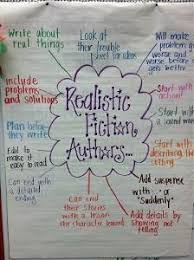 Write about
real things
Look at
their trouble
sheet for ideas
Will make
problems get
worse and
worse before it
gets better
include
problems
and solutions
Start with
action!
Realistic
Fiction
Authors...
Plan before
they write
Start with a
sound
Edit to
make it
easy to read
Start with
describing the
setting
Can end with
a detailed
ending
Add suspense
with..."
Suddenly"
Can end
their stories
with a lesson
the character learned
Add details by
showing not
telling